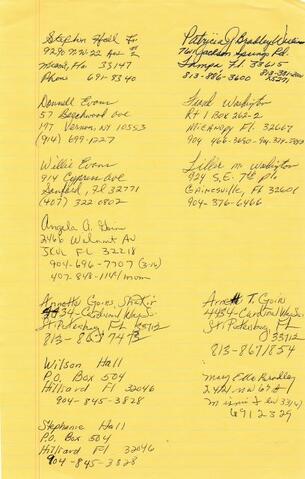 Stephen Hall Jr
9290 N.W. 22 Ave
Miami, Fla 33147
Phone 691-8340
Donnell Evans
57 Beechwood Ave
Mt Vernon, NY 10553
(914) 699-1227
Willie Evans
914 Cypress Ave
Sanford, Fl 32771
(407) 322 0802
Angela A.
2466 Walnut Av
FL 32218
904-696-7707 (3-16)
407-843-1141 mom
Annette Goins
4434-Cardinal Way S.
St Petersburg Fl 33712
813-867 7473
Wilson Hall
P.O. Box 504
Hilliard Fl 32046
904-845-3828
Stephanie Hall
P.O. Box 504
Hilliard Fl 32046
904-845-3828
Patricia J Bradley
Jackson Springs Rd.
Tampa Fl 33615
813-886-3600
Washington
Rt 1 Box 262-2
Micanopy Fl. 32667
904 466-3650
Lillie M Washington
924 S.E. 7th Pl
Gainesville, Fl 32601
904-376-6466
Annett T. Goins
4434-Cardinal Way S.
St. Petersburg, Fl
33712
813-8671854
Mary Etta Bradley
N.W.
6912329